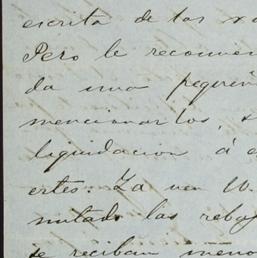 escrita de los
Pero le recomen
da una pequeñ
mencionarlos,
liquidacion á
La ven W.
las reba
se reciban meno